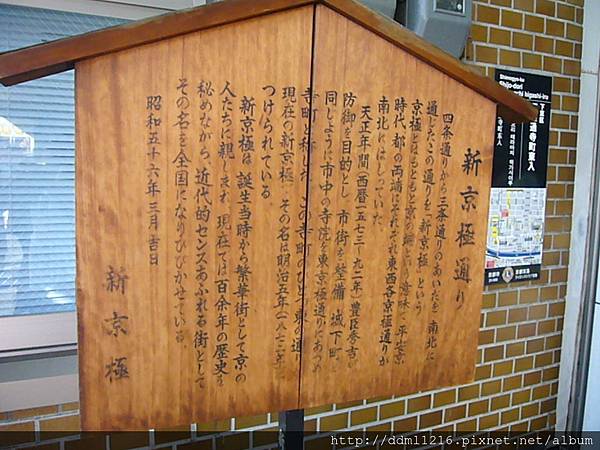 新京極通り
四条通りから三条通りのあいだを南北に
通じたこの通りを「新京極」という
京極とはもともと京の端という意味で平安京
時代、都の両端にそれぞれ東西各京極通りが
南北にはしっていた
天正年間(西暦一五七三〜九二年)豊臣秀吉が
防御を目的とし、市街を整備、城下町と
同じように市中の寺院を東京極通りにあつめ
寺町と称した この寺町のひとつ東の道が
現在の新京極、その名は明治五年(一八七二年)に
つけられている。
新京極は、誕生当時から繁華街として京の
人たちに親しまれ、現在では百余年の歴史を
秘めながら、近代的センスあふれる街として
その名を全国になりひびかせている。
昭和五十六年三月吉日
新京極
Shimogyo-ku
Shijo-dori
machi higashi-iru
下京区
通寺町東入
http://ddml1216.pixnet.net/album